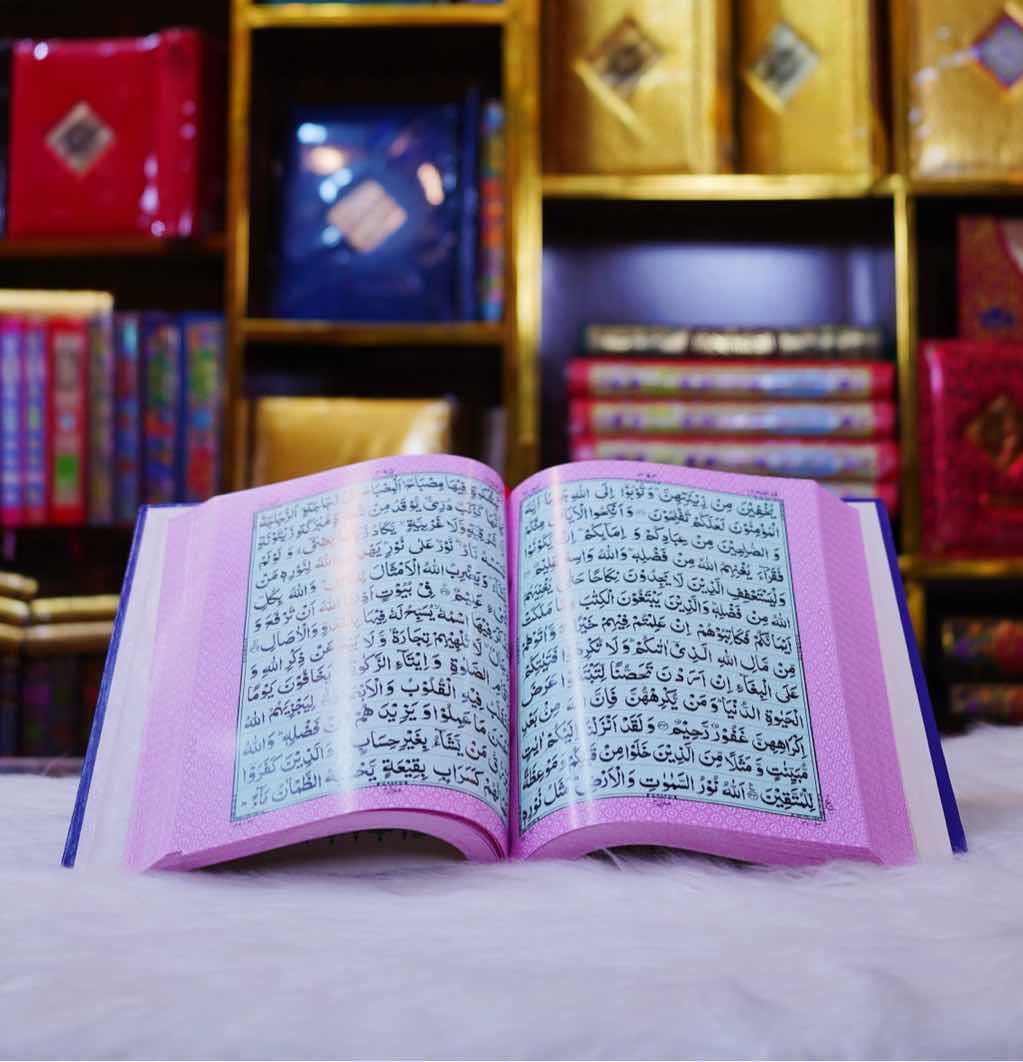 يُخْفِيْنَ مِنْ زِيْنَتِهِنَّ ؕ وَتُوْبُوْۤا اِلَى اللّٰهِ جَمِيْعًا اَيُّهَ
الْمُؤْمِنُوْنَ لَعَلَّكُمْ تُفْلِحُوْنَ وَ اَنْكِحُوا الْاَيَامٰى مِنْكُمْ
وَ الصّٰلِحِيْنَ مِنْ عِبَادِكُمْ وَ اِمَآئِكُمْ ؕ اِنْ يَّكُوْنُوْا
فُقَرَآءَ يُغْنِهِمُ اللّٰهُ مِنْ فَضْلِهٖ ؕ وَاللّٰهُ وَاسِعٌ عَلِيْمٌ
وَلْيَسْتَعْفِفِ الَّذِيْنَ لَا يَجِدُوْنَ نِكَاحًا حَتّٰى يُغْنِيَهُمُ
اللّٰهُ مِنْ فَضْلِهٖ ؕ وَالَّذِيْنَ يَبْتَغُوْنَ الْكِتٰبَ مِمَّا مَلَكَتْ
اَيْمَانُكُمْ فَكَاتِبُوْهُمْ اِنْ عَلِمْتُمْ فِيْهِمْ خَيْرًا وَّ اٰتُوْهُمْ
مِّنْ مَّالِ اللّٰهِ الَّذِيْۤ اٰتٰىكُمْ ؕ وَلَا تُكْرِهُوْا فَتَيٰتِكُمْ
عَلَى الْبِغَآءِ اِنْ اَرَدْنَ تَحَصُّنًا لِّتَبْتَغُوْا عَرَضَ
الْحَيٰوةِ الدُّنْيَا ؕ وَمَنْ يُّكْرِهْهُّنَّ فَاِنَّ اللّٰهَ مِنْۢ بَعْدِ
اِكْرَاهِهِنَّ غَفُوْرٌ رَّحِيْمٌ وَ لَقَدْ اَنْزَلْنَاۤ اِلَيْكُمْ اٰيٰتٍ
مُّبَيِّنٰتٍ وَّ مَثَلًا مِّنَ الَّذِيْنَ خَلَوْا مِنْ قَبْلِكُمْ وَ مَوْعِظَةً
لِّلْمُتَّقِيْنَ اَللّٰهُ نُوْرُ السَّمٰوٰتِ وَ الْاَرْضِ ؕ مَثَلُ نُوْرِهٖ
كَمِشْكٰوةٍ فِيْهَا مِصْبَاحٌ ؕ اَلْمِصْبَاحُ زُجَاجَةٍ ؕ اَلزُّجَاجَةُ
كَاَنَّهَا كَوْكَبٌ دُرِّيٌّ يُّوْقَدُ مِنْ زَيْتُوْنَةٍ
شَرْقِيَّةٍ وَّلَا غَرْبِيَّةٍ ۙ يَّكَادُ يُضِيْٓءُ وَ لَوْ لَمْ
تَمْسَسْهُ نَارٌ ؕ نُوْرٌ عَلٰى نُوْرٍ ؕ يَهْدِى اللّٰهُ لِنُوْرِهٖ مَنْ
وَ يَضْرِبُ اللّٰهُ الْاَمْثَالَ وَاللّٰهُ بِكُلِّ
شَىْءٍ عَلِيْمٌ فِيْ بُيُوْتٍ اَذِنَ اللّٰهُ اَنْ تُرْفَعَ وَ
يُذْكَرَ فِيْهَا اسْمُهٗ ۙ يُسَبِّحُ لَهٗ فِيْهَا بِالْغُدُوِّ وَ الْاٰصَالِ
رِجَالٌ ۙ لَّا تُلْهِيْهِمْ تِجَارَةٌ وَّ لَا بَيْعٌ عَنْ ذِكْرِ اللّٰهِ وَ
اِقَامِ الصَّلٰوةِ وَ اِيْتَآءِ الزَّكٰوةِ ۙ يَخَافُوْنَ يَوْمًا
تَتَقَلَّبُ فِيْهِ الْقُلُوْبُ وَ الْاَبْصَارُ لِيَجْزِيَهُمُ اللّٰهُ
اَحْسَنَ مَا عَمِلُوْا وَ يَزِيْدَهُمْ مِّنْ فَضْلِهٖ ؕ وَاللّٰهُ
يَرْزُقُ مَنْ يَّشَآءُ بِغَيْرِ حِسَابٍ وَ الَّذِيْنَ كَفَرُوْۤا
اَعْمَالُهُمْ كَسَرَابٍۭ بِقِيْعَةٍ يَّحْسَبُهُ الظَّمْاٰنُ مَآءً